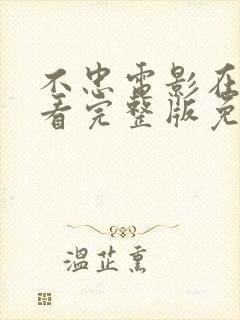 不忠电影在
看完整版免
温芷熏